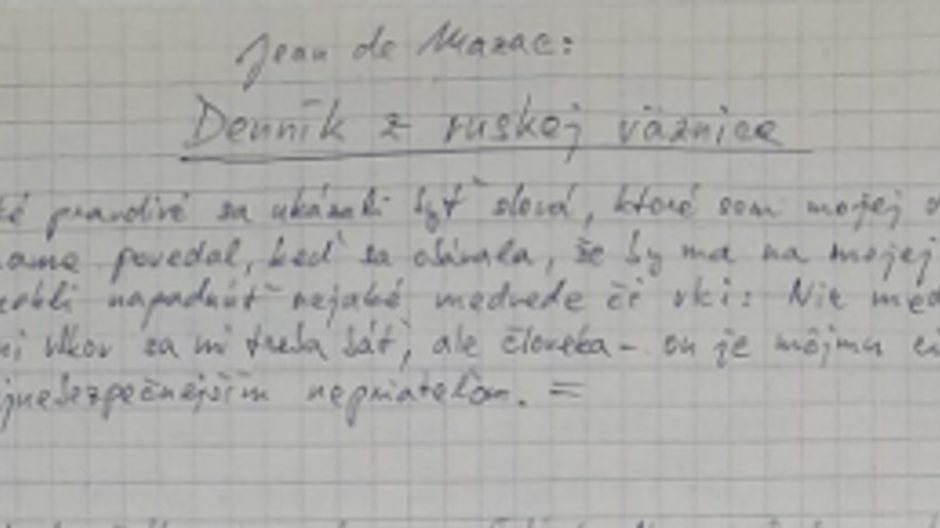 Jean de Mazac:
Denník z ruskej väznice
ké pravdivé sa ukázali byť slová, ktoré som mojej
mame povedal, keď sa obávala, že by ma na mojej
napadnúť nejaké medvede či vlci: Nie med
ni vlkov sa mi treba báť, ale človeka - on je môjmu
jnebezpečnejším nepriateľom. =